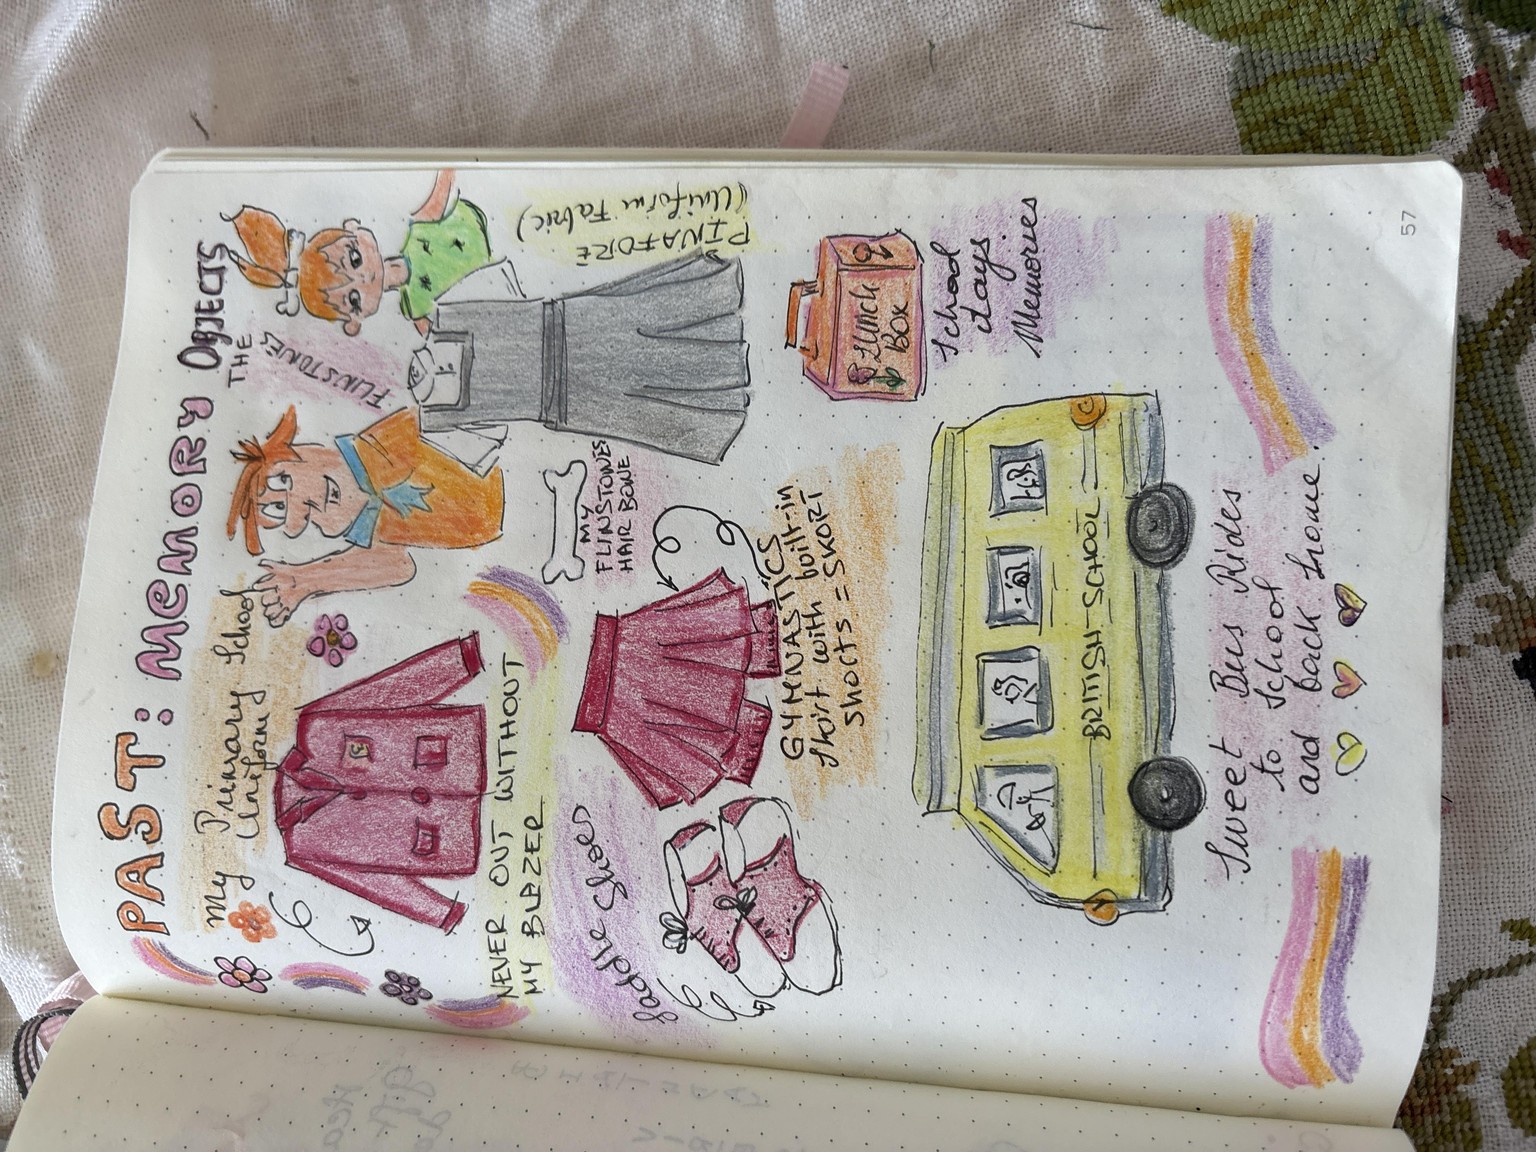 PAST: MEMORY OBJECTS
My Primary School
Uniform
THE
FLINSTONES
PINAFORE
(Uniform Fabric)
NEVER OUT WITHOUT
MY BLAZER
MY
FLINSTONES
HAIR BONE
Saddle Shoes
GYMNASTICS
Skirt with built-in
shorts = SKORT
Lunch
BOX
School
days.
Memories
BRITISH-SCHOOL
Sweet Bus Rides
to School
and back home.
57